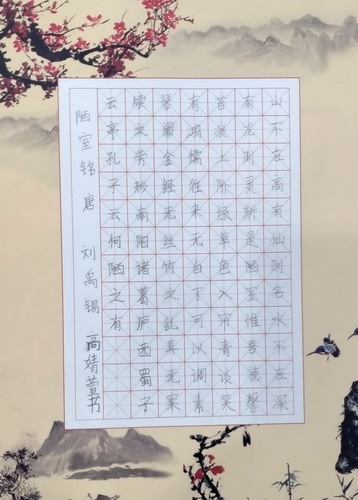 山不在高有仙则名水不在深
有龙则灵斯是陋室惟吾德馨
苔痕上阶绿草色入帘青谈笑
有鸿儒往来无白丁可以调素
琴阅金经无丝竹之乱耳无案
牍之劳形南阳诸葛庐西蜀子
云亭孔子云何陋之有
陋室铭 唐 刘禹锡 高婧萱书